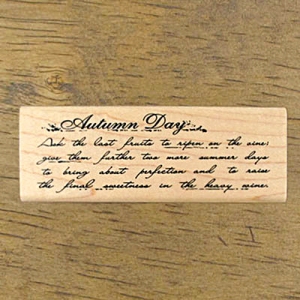 Autumn Day
Ask the last fruits to ripen on the vine;
give them further two more summer days
to bring about perfection and to raise
the final sweetness in the heavy wine.